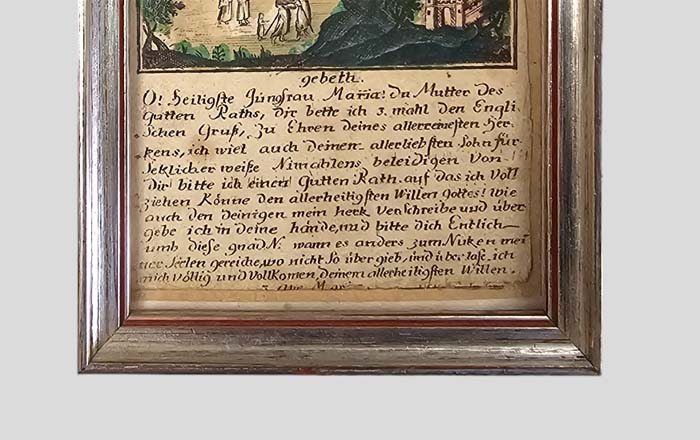 gebeth.
O! Heiligste Jüngfrau Maria! du Mutter des
gutten Raths, dir bette ich 3. mahl den Engli-
schen Gruß, Zu Ehren deines allerreinesten Her-
zens, ich wiel auch deinem allerliebsten Sohn für-
seklicher weiße Nimahlens beleidigen Von
Dir bitte ich einen Gutten Rath, auf das ich Voll
ziehen Könne den allerheiligsten Willen gottes! wie
auch den deinigen mein herk Verschreibe und über
gebe ich in deine hände, und bitte dich Entlich
umb diese gnadN. wann es anders zum Nuken mei
ner Seelen gereiche, wo nicht So über gieb, und über lase ich
mich völlig und Vollkomen, deinem allerheiligsten Willen.
3. Ave Mar